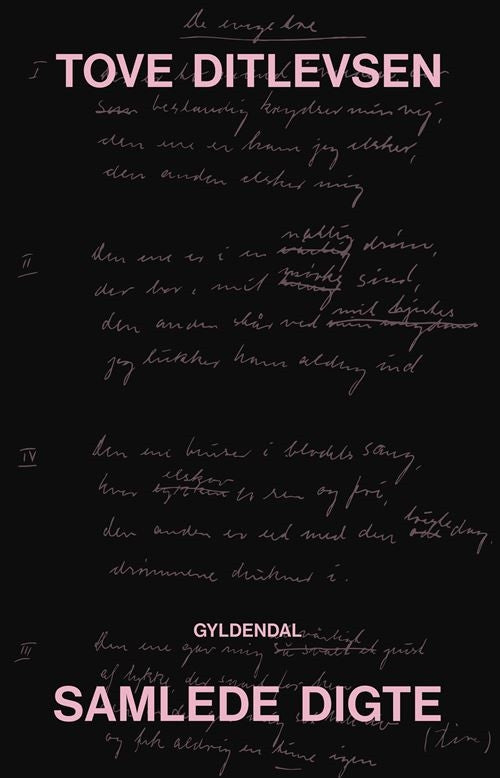 De evige tre
I
TOVE DITLEVSEN
bestandig krydser min vej,
den ene er ham jeg elsker,
den anden elsker mig
natlig
II Den ene er i en drøm,
mørke
der bor i mit sind,
mit hjertes
den anden står ved
jeg lukker ham aldrig ind
IV Den ene bruser i blodets sang,
elskov
hvor er ren og fri,
den anden er eet med den dag,
drømmene drukner i.
GYLDENDAL
III Den ene gav mig et pust
af lykke, der
SAMLEDE DIGTE
og fik aldrig en time igen